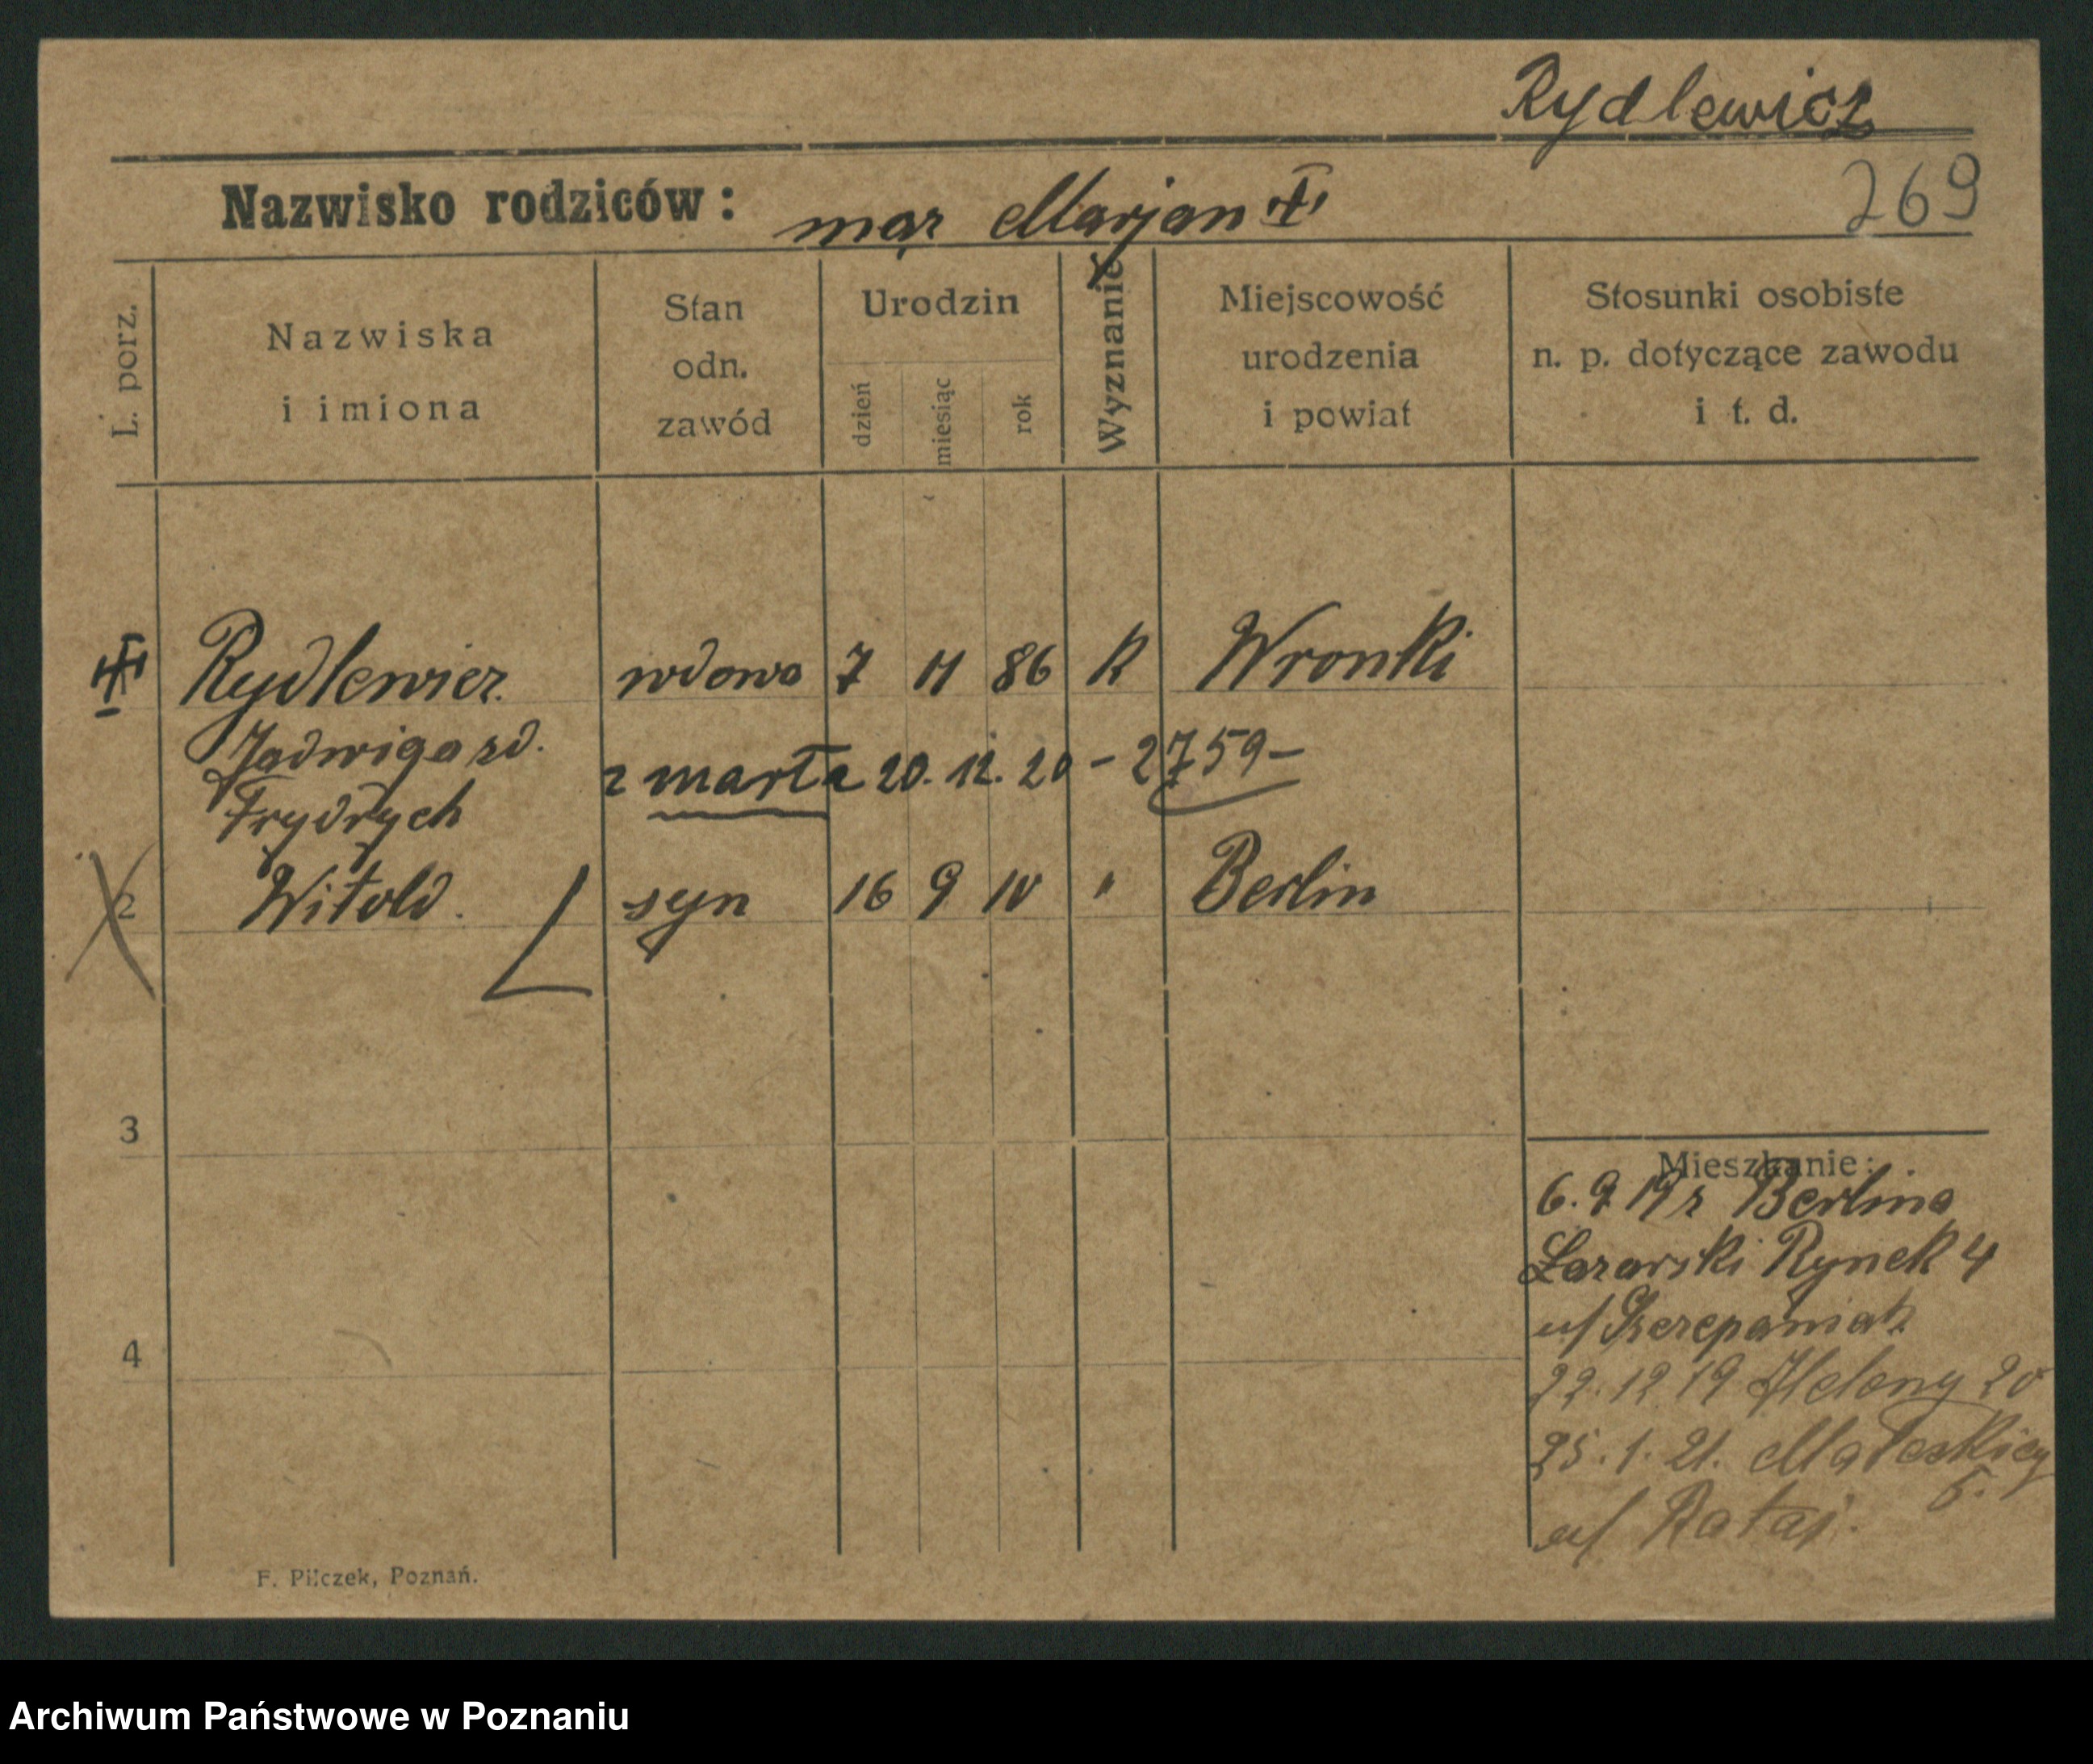 Rydlewicz
Nazwisko rodziców: mąż Marjan
269
L. porz.
Nazwiska
i imiona
Stan
odn.
zawód
Urodzin
dzień
miesiąc
rok
Wyznanie
Miejscowość
urodzenia
i powiat
Stosunki osobiste
n. p. dotyczące zawodu
i t. d.
Rydlewicz wdowa 7 11 86 K Wronki
Jadwiga zd.
zmarła 20. 12. 20 - 2759 -
Frydrych
2 Witold. syn 16 9 10 " Berlin
3
4
Mieszkanie:
6. 9 19 z Berlina
Łazarski Rynek 4
u/ Szczepaniak
22. 12 19 Heleny 20
25. 1. 21. Małeckiej
5.
u/ Rataj.
F. Pilczek, Poznań.
Archiwum Państwowe w Poznaniu